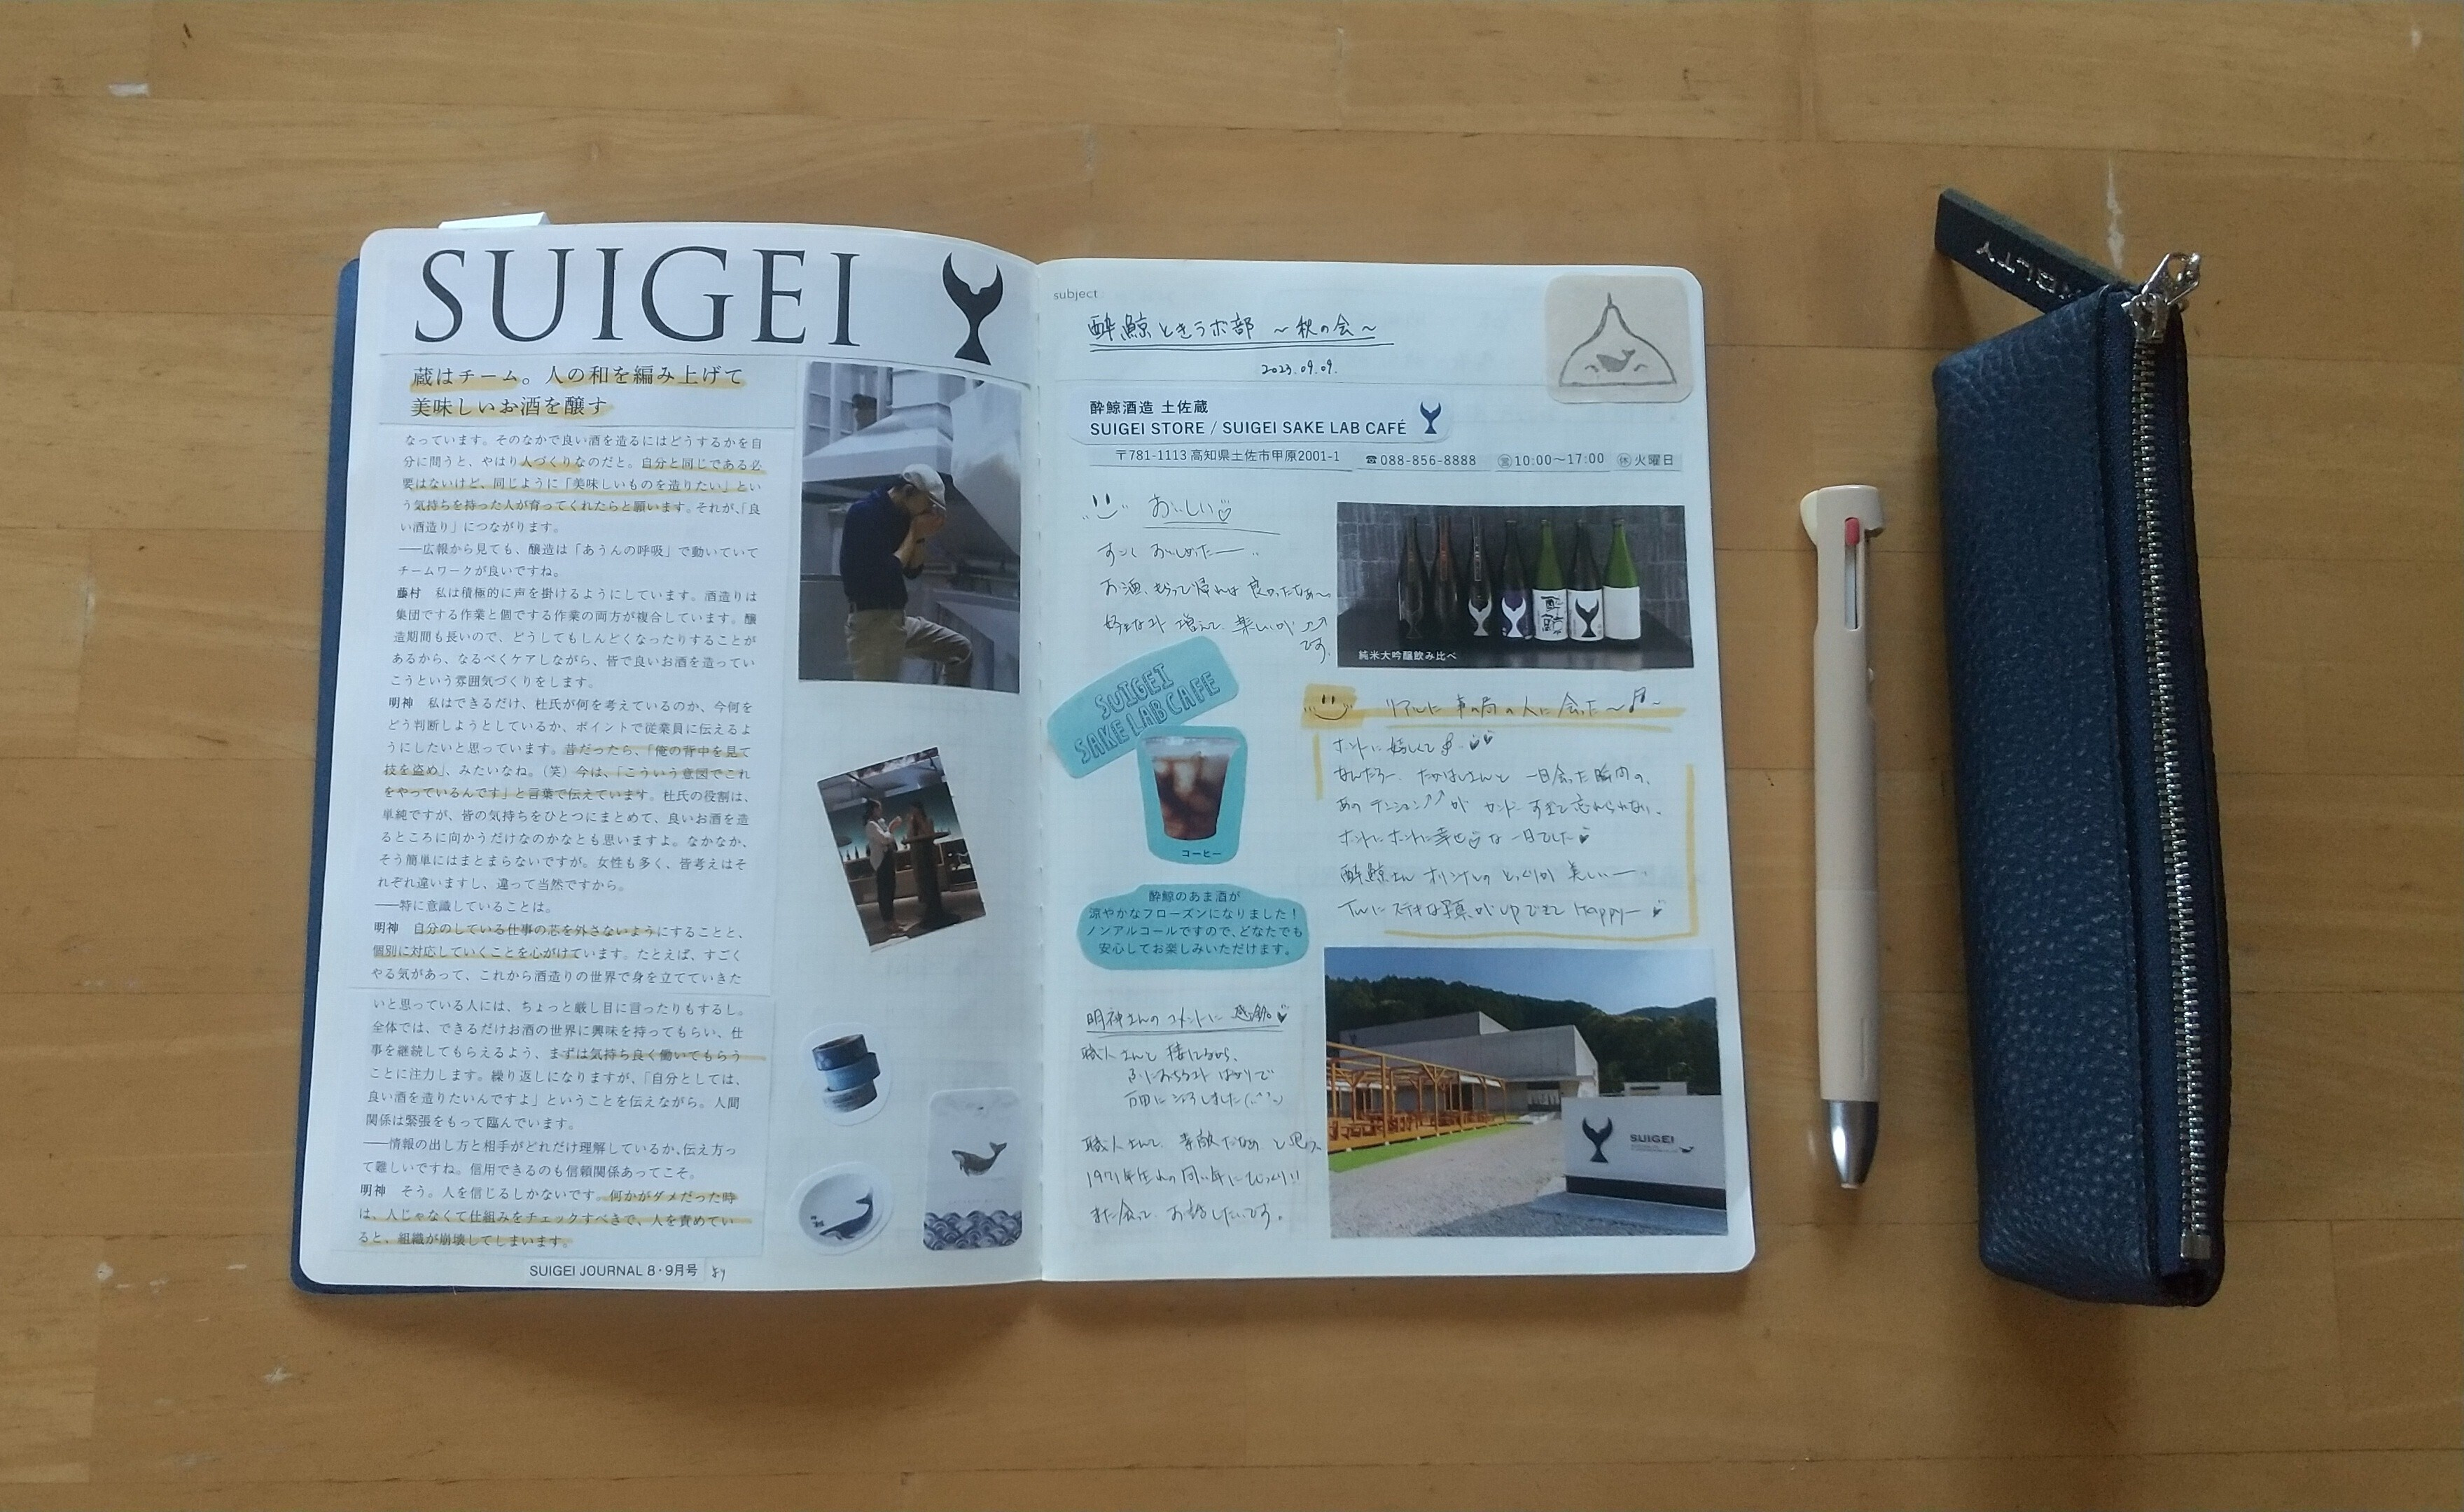 SUIGEI
蔵はチーム。人の和を編み上げて
美味しいお酒を醸す
なっています。そのなかで良い酒を造るにはどうするかを自
分に問うと、やはり人づくりなのだと。自分と同じである必
要はないけど、同じように「美味しいものを造りたい」とい
う気持ちを持った人が育ってくれたらと願います。それが、「良
い酒造り」につながります。
――広報から見ても、醸造は「あうんの呼吸」で動いていて
チームワークが良いですね。
藤村 私は積極的に声を掛けるようにしています。酒造りは
集団でする作業と個でする作業の両方が複合しています。醸
造期間も長いので、どうしてもしんどくなったりすることが
あるから、なるべくケアしながら、皆で良いお酒を造ってい
こうという雰囲気づくりをします。
明神 私はできるだけ、杜氏が何を考えているのか、今何を
どう判断しようとしているか、ポイントで従業員に伝えるよ
うにしたいと思っています。昔だったら、「俺の背中を見て
技を盗め」、みたいなね。(笑)今は、「こういう意図でこれ
をやっているんです」と言葉で伝えています。杜氏の役割は、
単純ですが、皆の気持ちをひとつにまとめて、良いお酒を造
るところに向かうだけなのかなとも思いますよ。なかなか、
そう簡単にはまとまらないですが。女性も多く、皆考えはそ
れぞれ違いますし、違って当然ですから。
――特に意識していることは。
明神 自分のしている仕事の芯を外さないようにすることと、
個別に対応していくことを心がけています。たとえば、すごく
やる気があって、これから酒造りの世界で身を立てていきた
いと思っている人には、ちょっと厳し目に言ったりもするし。
全体では、できるだけお酒の世界に興味を持ってもらい、仕
事を継続してもらえるよう、まずは気持ち良く働いてもらう
ことに注力します。繰り返しになりますが、「自分としては、
良い酒を造りたいんですよ」ということを伝えながら。人間
関係は緊張をもって臨んでいます。
――情報の出し方と相手がどれだけ理解しているか、伝え方っ
て難しいですね。信用できるのも信頼関係あってこそ。
明神 そう。人を信じるしかないです。何かがダメだった時
は、人じゃなくて仕組みをチェックすべきで、人を責めてい
ると、組織が崩壊してしまいます。
SUIGEI JOURNAL 8・9月号 より
subject
酔鯨ときラボ部 ~秋の会~
2023.09.09.
酔鯨酒造 土佐蔵
SUIGEI STORE / SUIGEI SAKE LAB CAFÉ
〒781-1113 高知県土佐市甲原2001-1 ☎088-856-8888 ㊡10:00〜17:00 ㊡火曜日
おいしい♡
すごく おいしかったー
お酒、もらって帰れば 良かったなぁ〜
増えて、楽しいが
です。
純米大吟醸飲み比べ
SUIGEI
SAKE LAB CAFE
コーヒー
酔鯨のあま酒が
涼やかなフローズンになりました！
ノンアルコールですので、どなたでも
安心してお楽しみいただけます。
リアルに 事務局の人に 会った〜♪〜
ホントに 嬉しくて
なんだろー、たかはしさんと 一日会った瞬間の、
あの テンション が ホントに 忘れられない、
ホントに ホントに幸せ♡な 一日でした
酔鯨さん オリジナルの とっくりが 美しいー
Twに ステキな写真が up できて Happyー
明神さんの コメントに 感動
職人さんと 接してるから、
ばかりで
職人さんて、素敵だなぁ と思う
1971年生れの 同い年に びっくり!!
また会って お話したいです。
SUIGEI